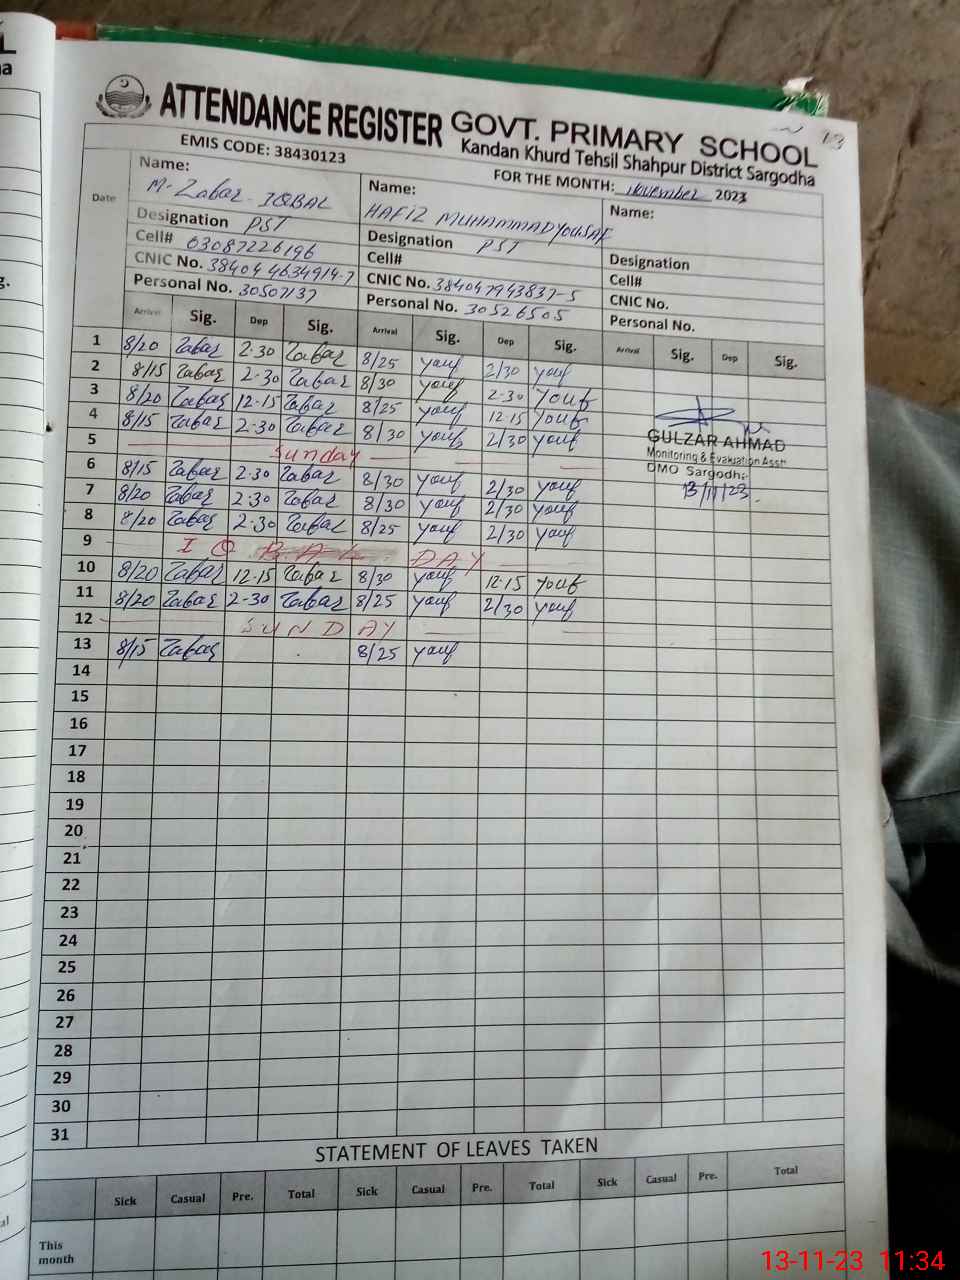 ATTENDANCE REGISTER GOVT. PRIMARY SCHOOL
Kandan Khurd Tehsil Shahpur District Sargodha
EMIS CODE: 38430123
FOR THE MONTH: November 2023
Date
Name: M. Zabar IQBAL
Designation PST
Cell# 03087226196
CNIC No. 38404 4634914-7
Personal No. 30507137
Name: HAFIZ MUHAMMAD YOUSAF
Designation PST
Cell#
CNIC No. 384047943837-5
Personal No. 30526505
Name:
Designation
Cell#
CNIC No.
Personal No.
Arrival Sig. Dep Sig. Arrival Sig. Dep Sig. Arrival Sig. Dep Sig.
1 8/20 Zabar 2.30 Zabar 8/25 youf 2/30 youf
2 8/15 Zabar 2-30 Zabar 8/30 youf 2-30 youf
3 8/20 Zabar 12-15 Zabar 8/25 youf 12.15 youf
4 8/15 Zabar 2.30 Zabar 8/30 youf 2/30 youf
5 Sunday
6 8/15 Zabar 2.30 Zabar 8/30 youf 2/30 youf
7 8/20 Zabar 2.30 Zabar 8/30 youf 2/30 youf
8 8/20 Zabar 2.30 Zabar 8/25 youf 2/30 youf
9 IQBAL DAY
10 8/20 Zabar 12.15 Zabar 8/30 youf 12.15 youf
11 8/20 Zabar 2-30 Zabar 8/25 youf 2/30 youf
12 SUNDAY
13 8/15 Zabar 8/25 youf
GULZAR AHMAD
Monitoring & Evaluation Asst:
DMO Sargodh:
13/11/23.
14
15
16
17
18
19
20
21
22
23
24
25
26
27
28
29
30
31
STATEMENT OF LEAVES TAKEN
Sick Casual Pre. Total Sick Casual Pre. Total Sick Casual Pre. Total
This month
13-11-23 11:34